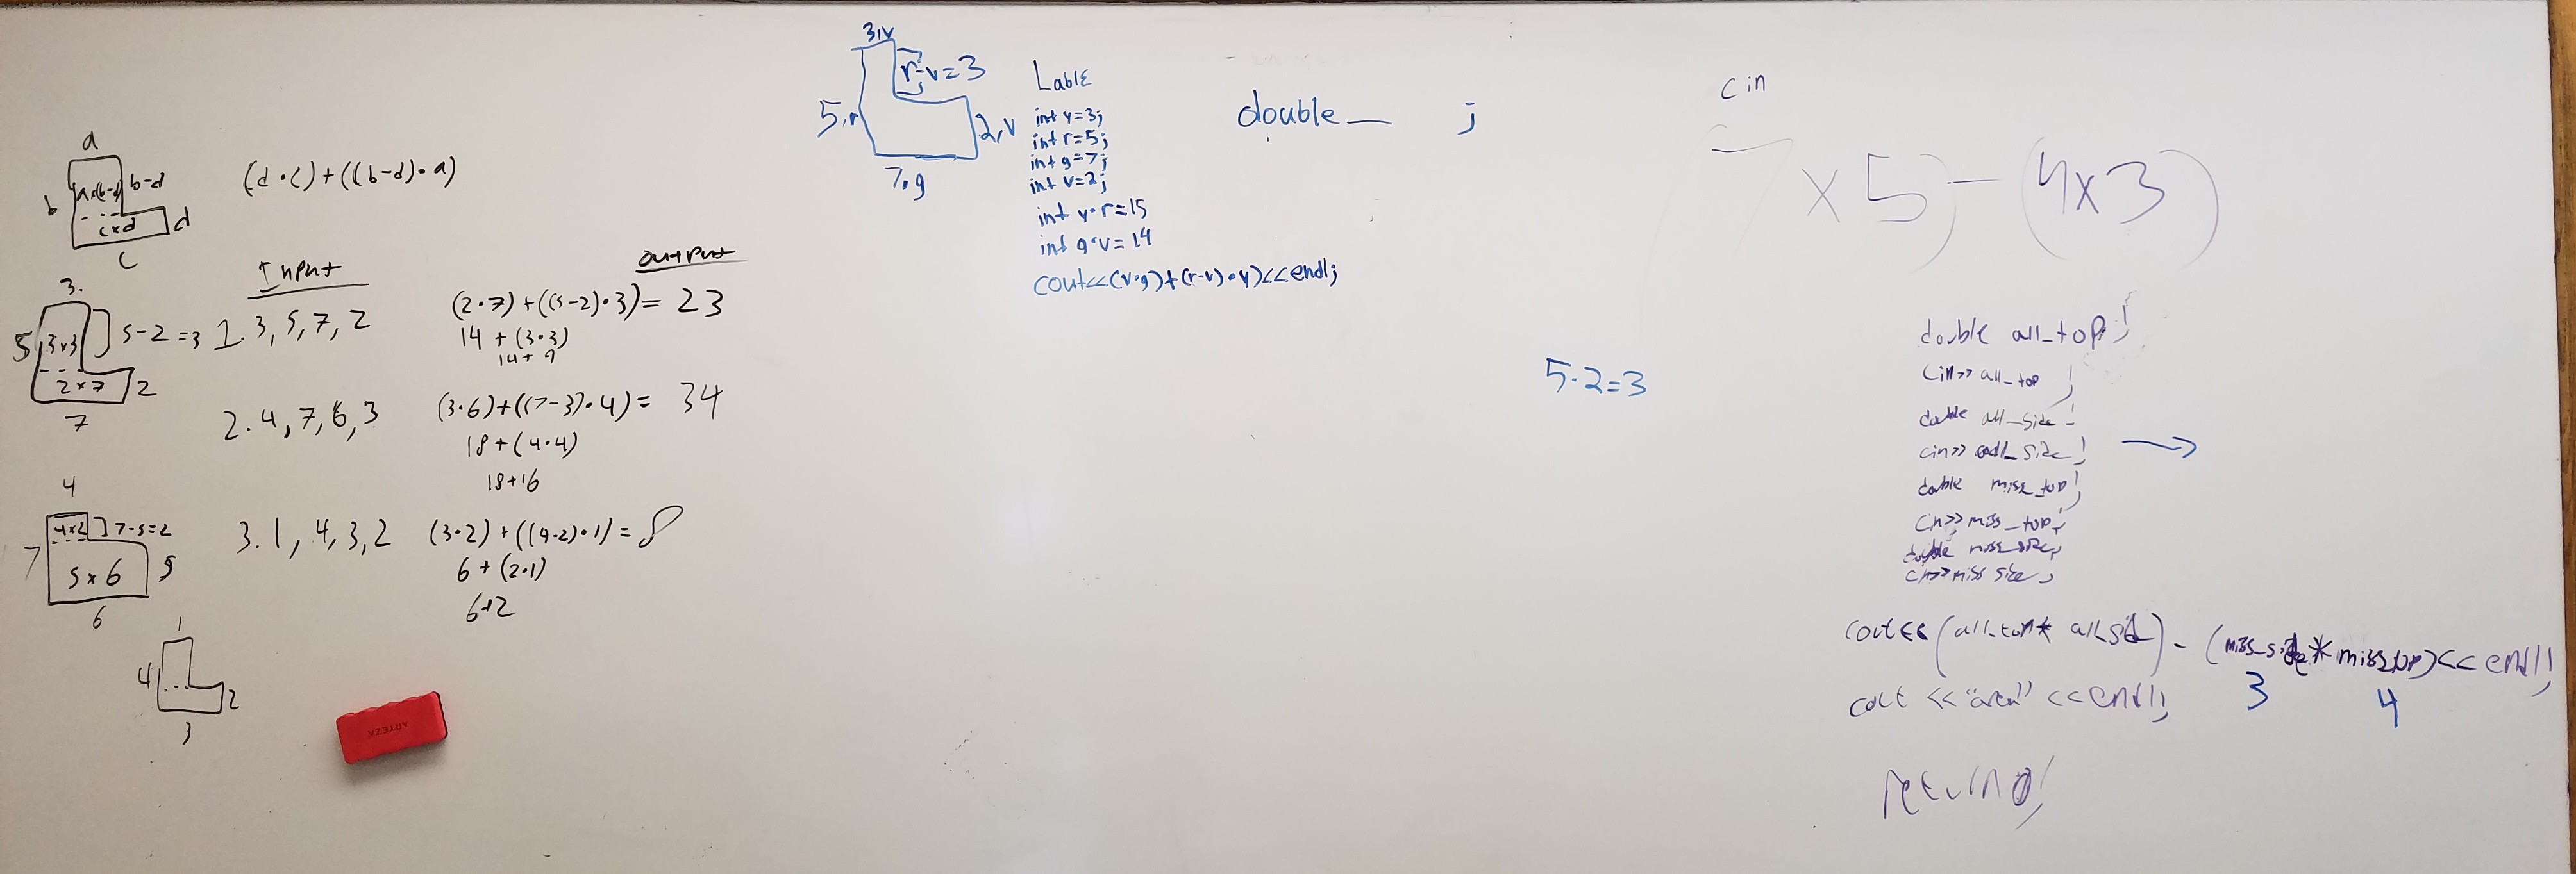 a
a×(b-d) b-d
b
c×d d
c
(d·c)+((b-d)·a)
Input
output
3.
5 3×3 5-2=3
2×7 2
7
1. 3, 5, 7, 2
(2·7)+((5-2)·3)= 23
14 + (3·3)
14+9
2. 4, 7, 6, 3
(3·6)+((7-3)·4)= 34
18+(4·4)
18+16
4
4×2 7-5=2
7 5×6 5
6
3. 1, 4, 3, 2
(3·2)+((4-2)·1)= 8
6+(2·1)
6+2
1
4 2
3
ARTEZA
3,y
r-v=3
5,r 2,v
7,g
Lable
int y=3;
int r=5;
int g=7;
int v=2;
int y·r=15
int g·v=14
cout<<(v·g)+(r-v)·y)<<endl;
double_ ;
5-2=3
cin
7×5)-(4×3)
double all_top;
cin>>all_top;
double all_side;
cin>>all_side;
double miss_top;
cin>>miss_top;
double miss_size;
cin>>miss size;
cout<<(all_top* all_sid)-(miss_side*miss_top)<<endl;
3 4
cout <<"area"<<endl;
return 0;